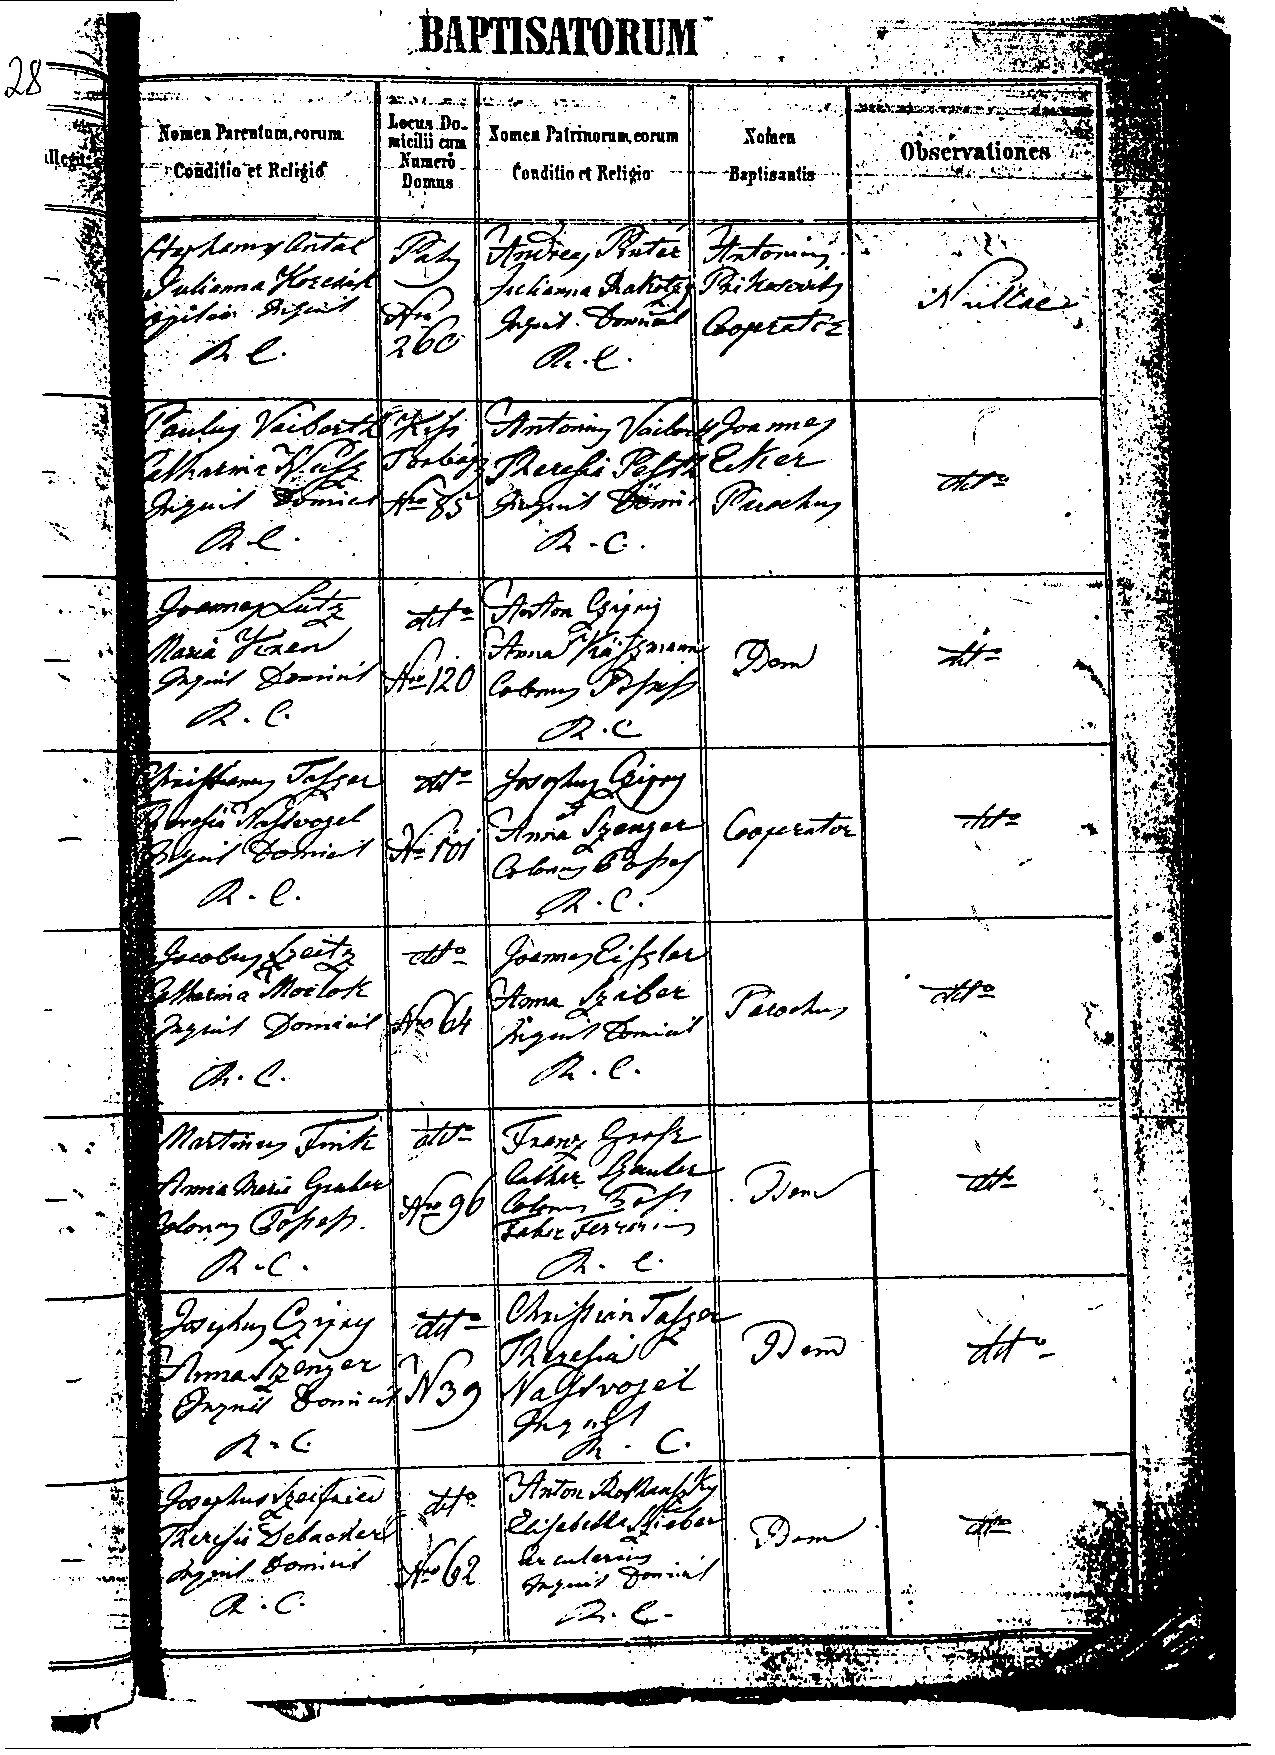 BAPTISATORUM
28
Nomen Parentum, eorum
Conditio et Religio
Locus Do-
micilii cum
Numero
Domus
Nomen Patrinorum, eorum
Conditio et Religio
Nomen
Baptisantis
Observationes
Antal
Julianna
Inquil
R. C.
Paty
Nro
260
Andreas Pinter
Julianna Rakotzy
Inquil. Domicil
R. C.
Antonius
Prikosovits
Cooperator
Nullae
Paulus Vaiberth
Catharina
Inquil Domicil
R. C.
Kiss
Torbágy
Nro 85
Antonius
Theresia
Inquil Domil
R. C.
Joannes
Eker
Parochus
dtto
Joannes Lutz
Maria
Inquil Domicil
R. C.
dtto
Nro 120
Anton Czigny
Anna
Colonus Possess
R. C.
Idem
dtto
Taszer
Theresia Nassvogel
Inquil Domicil
R. C.
dtto
Nro 101
Josephus Czigny
Anna Szenger
Colonus Possess
R. C.
Cooperator
dtto
Jacobus Szeitz
Catharina Morlok
Inquil Domicil
R. C.
dtto
Nro 64
Joannes Eissler
Anna Szaiber
Inquil Domicil
R. C.
Parochus
dtto
Martinus Fink
Anna Maria Gruber
Colonus Possess.
R. C.
dtto
Nro 96
Franz Grosz
Cather.
Colonus Poss.
Faber Ferrarius
R. C.
Idem
dtto
Josephus Czigny
Anna Szenger
Inquil Domicil
R. C.
dtto
N 39
Christian Taszer
Theresia
Nassvogel
Inquil
R. C.
Idem
dtto
Josephus Szeifried
Theresia
Inquil Domicil
R. C.
dtto
Nro 62
Anton
Elisabetha Stieber
Arcularius
Inquil Domicil
R. C.
Idem
dtto